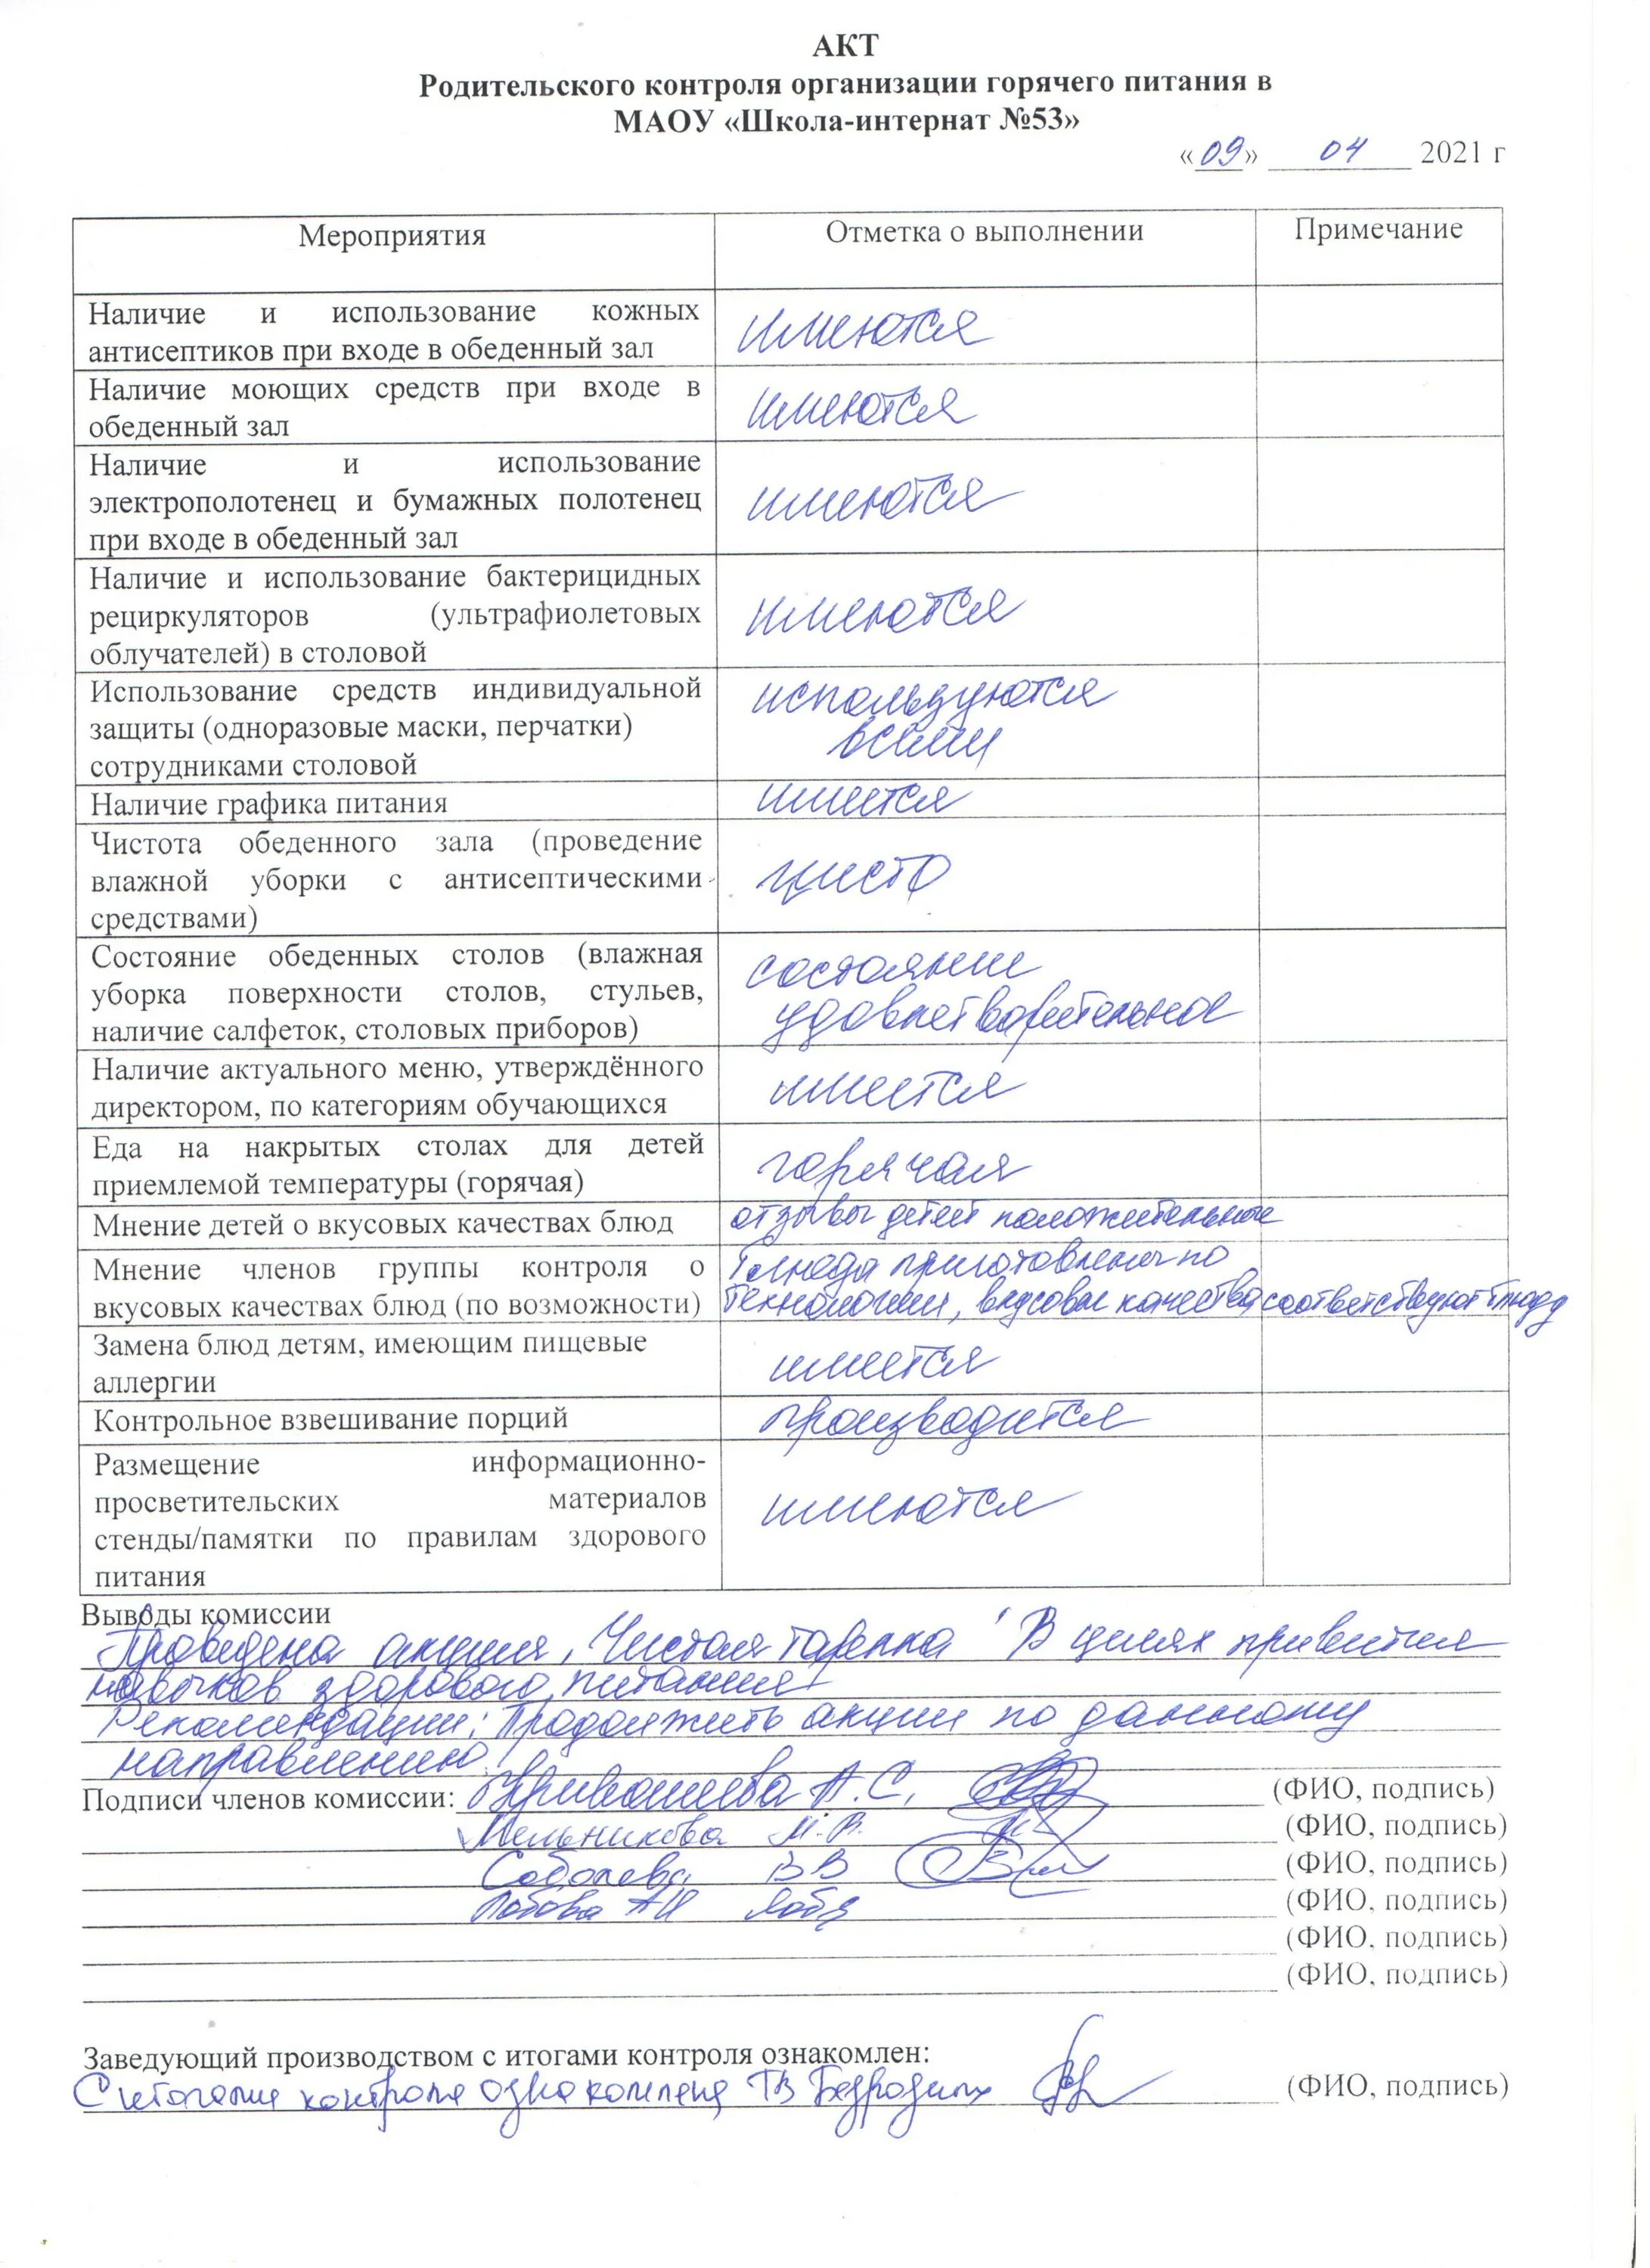 АКТ
Родительского контроля организации горячего питания в
МАОУ «Школа-интернат №53»
«09» 04 2021 г
Мероприятия Отметка о выполнении Примечание
Наличие и использование кожных
антисептиков при входе в обеденный зал
имеются
Наличие моющих средств при входе в
обеденный зал
имеются
Наличие и использование
электрополотенец и бумажных полотенец
при входе в обеденный зал
имеются
Наличие и использование бактерицидных
рециркуляторов (ультрафиолетовых
облучателей) в столовой
имеются
Использование средств индивидуальной
защиты (одноразовые маски, перчатки)
сотрудниками столовой
используются
всеми
Наличие графика питания
имеется
Чистота обеденного зала (проведение
влажной уборки с антисептическими
средствами)
чисто
Состояние обеденных столов (влажная
уборка поверхности столов, стульев,
наличие салфеток, столовых приборов)
состояние
удовлетворительное
Наличие актуального меню, утверждённого
директором, по категориям обучающихся
имеется
Еда на накрытых столах для детей
приемлемой температуры (горячая)
горячая
Мнение детей о вкусовых качествах блюд
отзывы детей положительные
Мнение членов группы контроля о
вкусовых качествах блюд (по возможности)
блюда приготовлены по
технологии, вкусовые качества соответствуют блюду
Замена блюд детям, имеющим пищевые
аллергии
имеется
Контрольное взвешивание порций
производится
Размещение информационно-
просветительских материалов
стенды/памятки по правилам здорового
питания
имеются
Выводы комиссии
Проведена акция „Чистая тарелка" В целях привития
навыков здорового питания
Рекомендации: Продолжить акции по данному
направлению.
Подписи членов комиссии: Кривошеева А.С. (ФИО, подпись)
Мельникова М.В. (ФИО, подпись)
Соболева ВВ (ФИО, подпись)
Лобова АИ (ФИО, подпись)
(ФИО, подпись)
(ФИО, подпись)
Заведующий производством с итогами контроля ознакомлен:
С итогами контроля ознакомлена ТВ Безродных (ФИО, подпись)